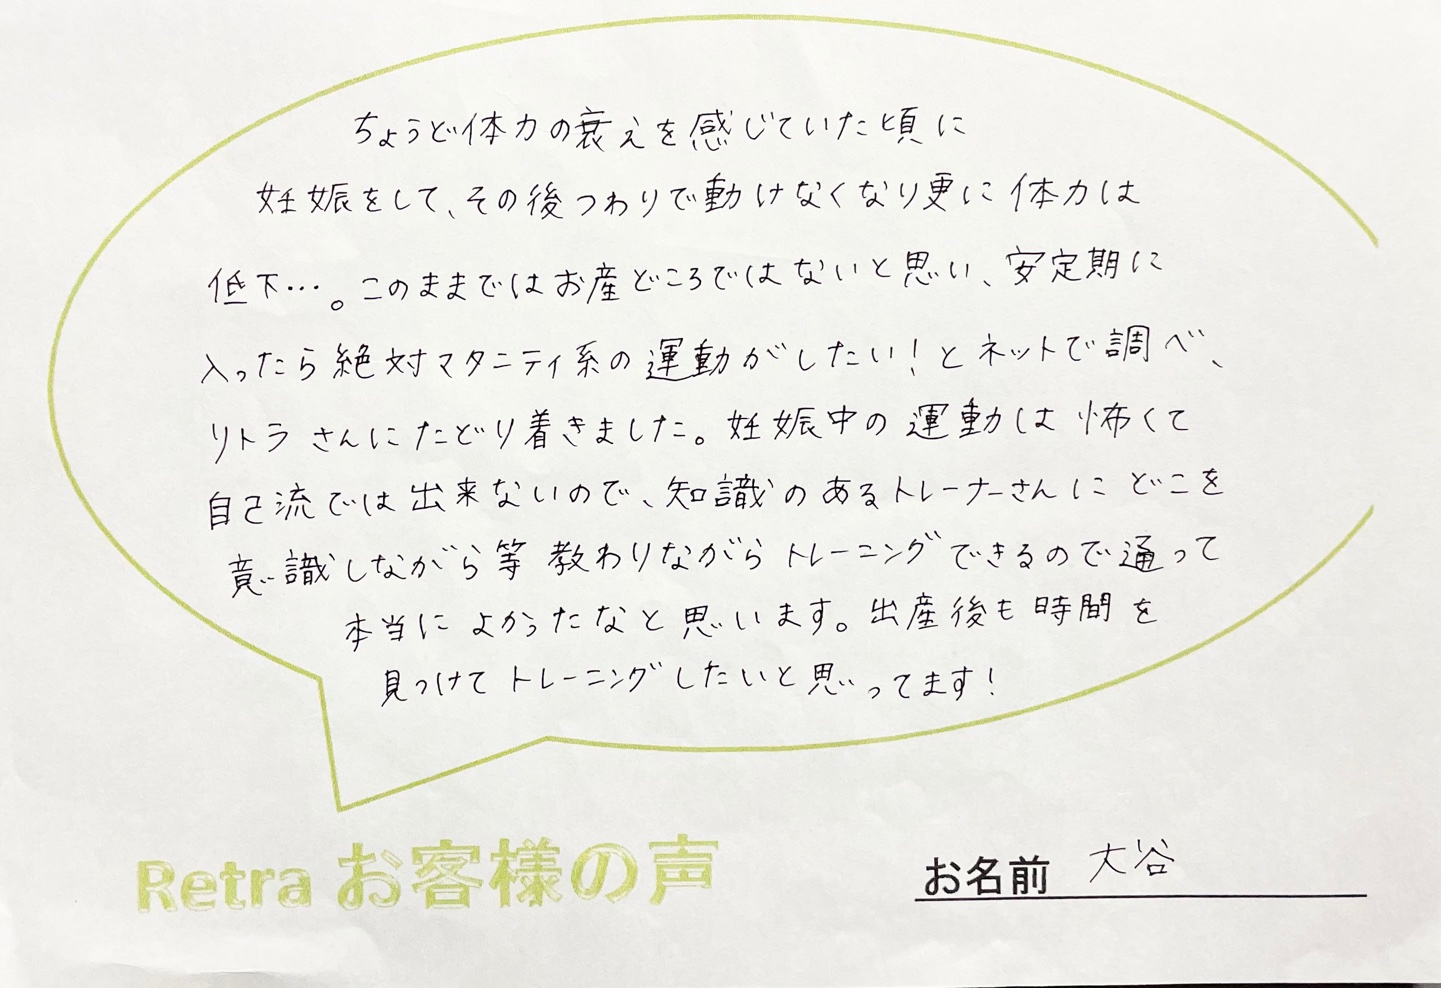 ちょうど体力の衰えを感じていた頃に
妊娠をして、その後つわりで動けなくなり更に体力は
低下…。このままではお産どころではないと思い、安定期に
入ったら絶対マタニティ系の運動がしたい！とネットで調べ、
リトラさんにたどり着きました。妊娠中の運動は怖くて
自己流では出来ないので、知識のあるトレーナーさんにどこを
意識しながら等教わりながらトレーニングできるので通って
本当によかったなと思います。出産後も時間を
見つけてトレーニングしたいと思ってます！
Retra お客様の声
お名前 大谷